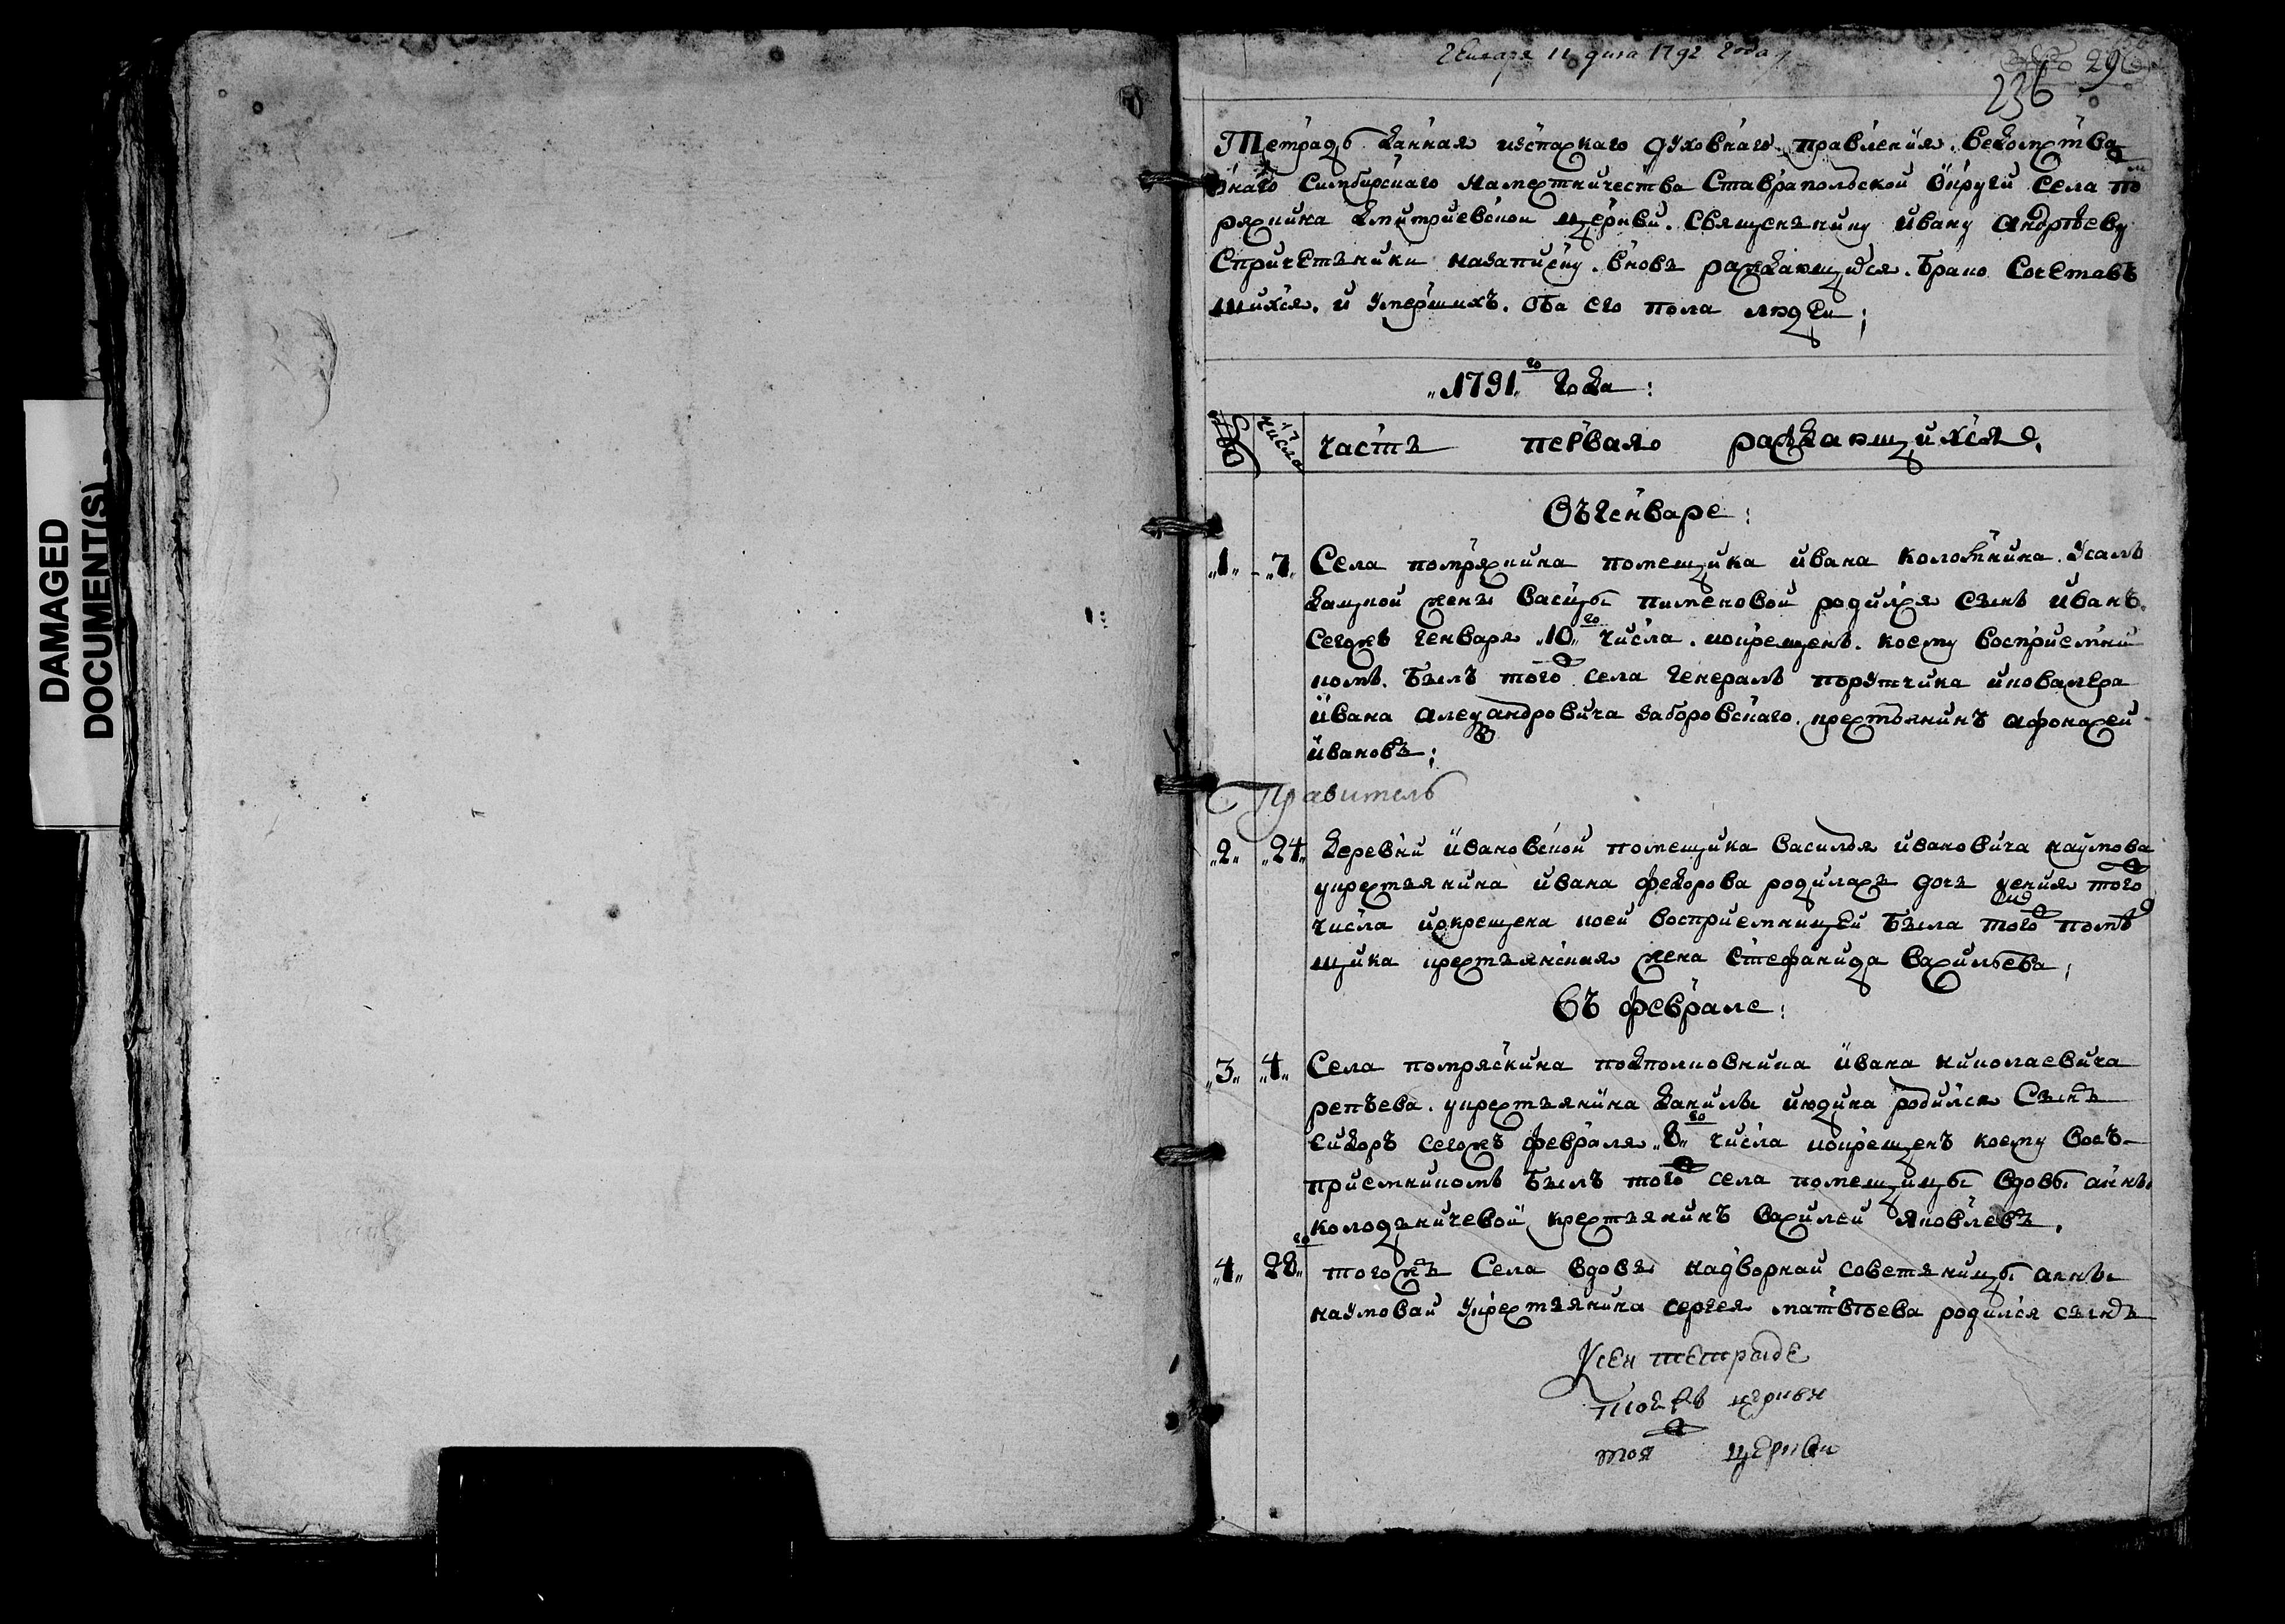 DAMAGED
DOCUMENT(S)
Генваря 11 дня 1792 года
29
236
Тетрадь данная духовнаго правления ведомства
Симбирскаго наместничества Ставрапольской округи села по
ряскина Дмитриевской церкви. Священнику ивану андрѣеву
Спричетъники назаписку. вновъ раждающихся. брако Сочетавъ
шихся. и умершихъ. оба его пола людеи;
„1791„го года:
числа
часть первая раждающихся
Въ Генваре:
„1„ „7„ Села помряскина помещика ивана колоткина. Усалъ
дацкой жены Василисы пименовой родился сынъ иванъ.
Сегожъ Генваря „10„го числа. и окрещенъ. коему восприемни
комъ. былъ того села генералъ порутчика иковалера
ивана александровича заборовскаго. крестьянинъ афонасеи
ивановъ;
Правитель
„2„ „24„ деревни ивановской помещика василья ивановича наумова
укрестьянина ивана федорова родилась дочь ксения того
числа иокрещена коей восприемницей была того помѣ
щика крестьянская жена стефанида васильева;
Въ феврале:
„3„ „4„ Села помряскина подполковника ивана николаевича
репьева. укрестьянина данилы июдина родился сынъ
сидоръ сегожъ февраля „8„го числа иокрещенъ коему восъ
приемникомъ былъ того села помещицы вдовы анны
колодъничевой крестьянинъ василей яковлевъ.
„4„ 28„го тогожъ села вдовы надворнай советницы анны
наумовай укрестьянина сергея матвѣева родился сынъ
Ксеи тетраде
тоя церкви